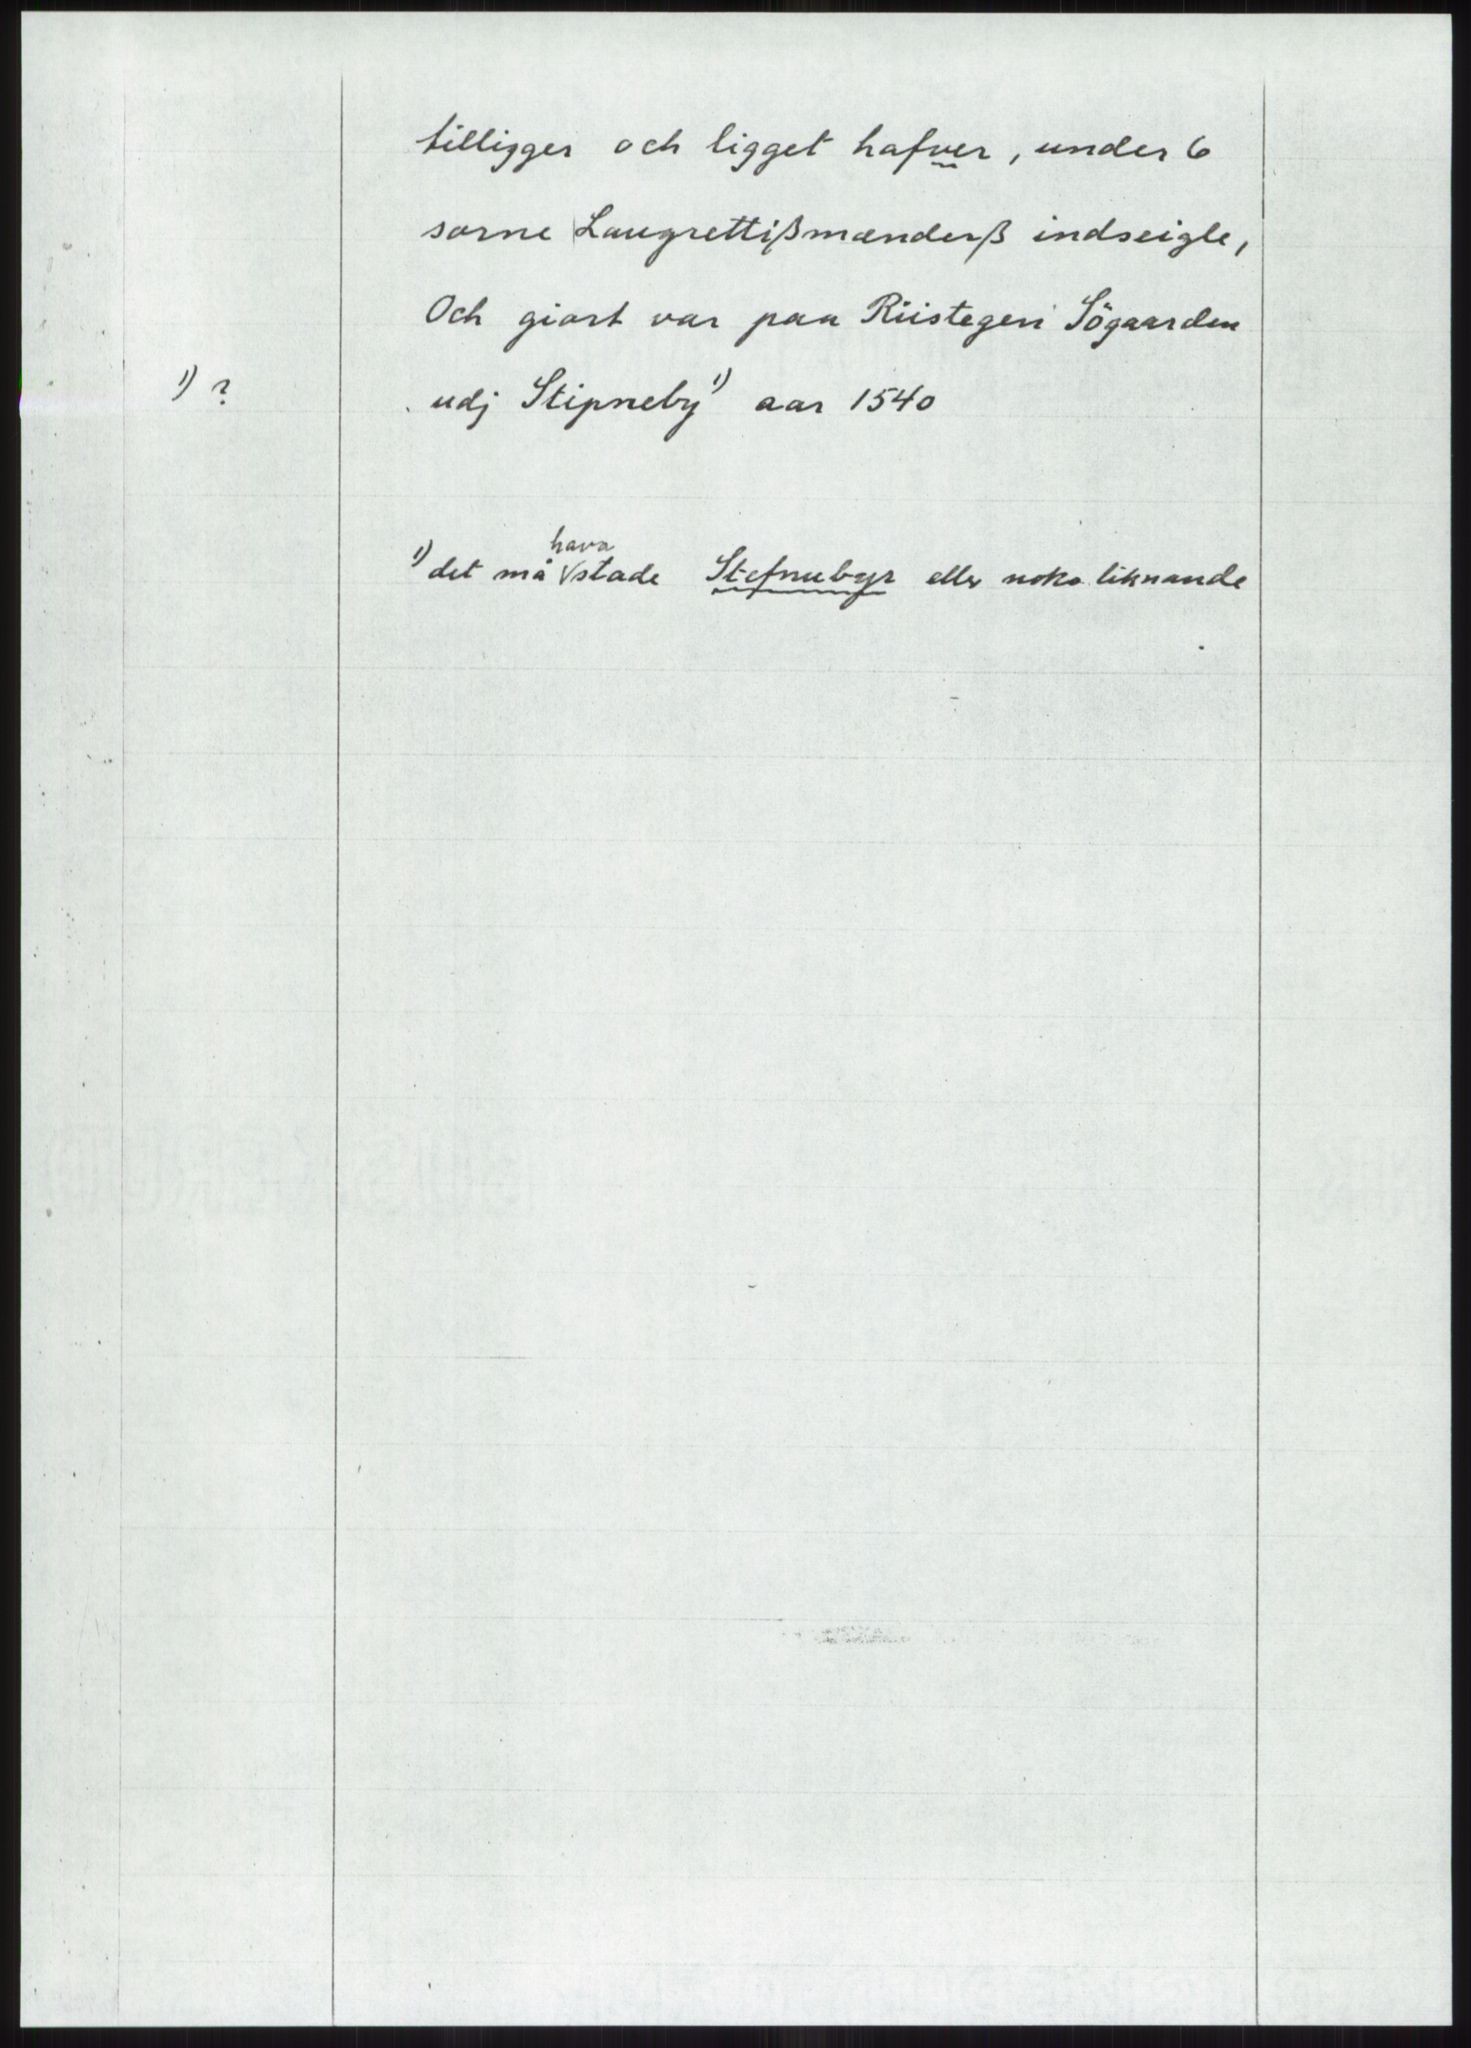 tilligger och ligget hafver, under 6
sorne Laugrettißmænderß indseigle,
Och giort var paa Riistegeri Sögaarden
1) ?
udj Stipneby 1) aar 1540
hava
1) det må √stade Stefnubyr eller noko liknande